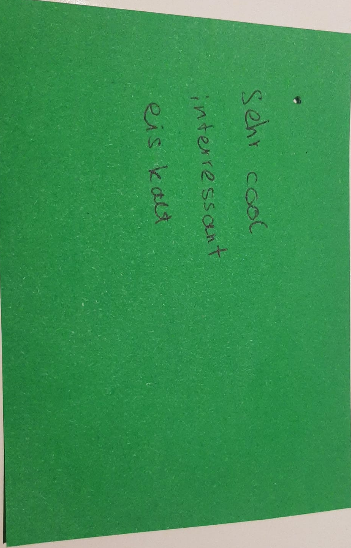 Sehr cool
interressant
eis kalt